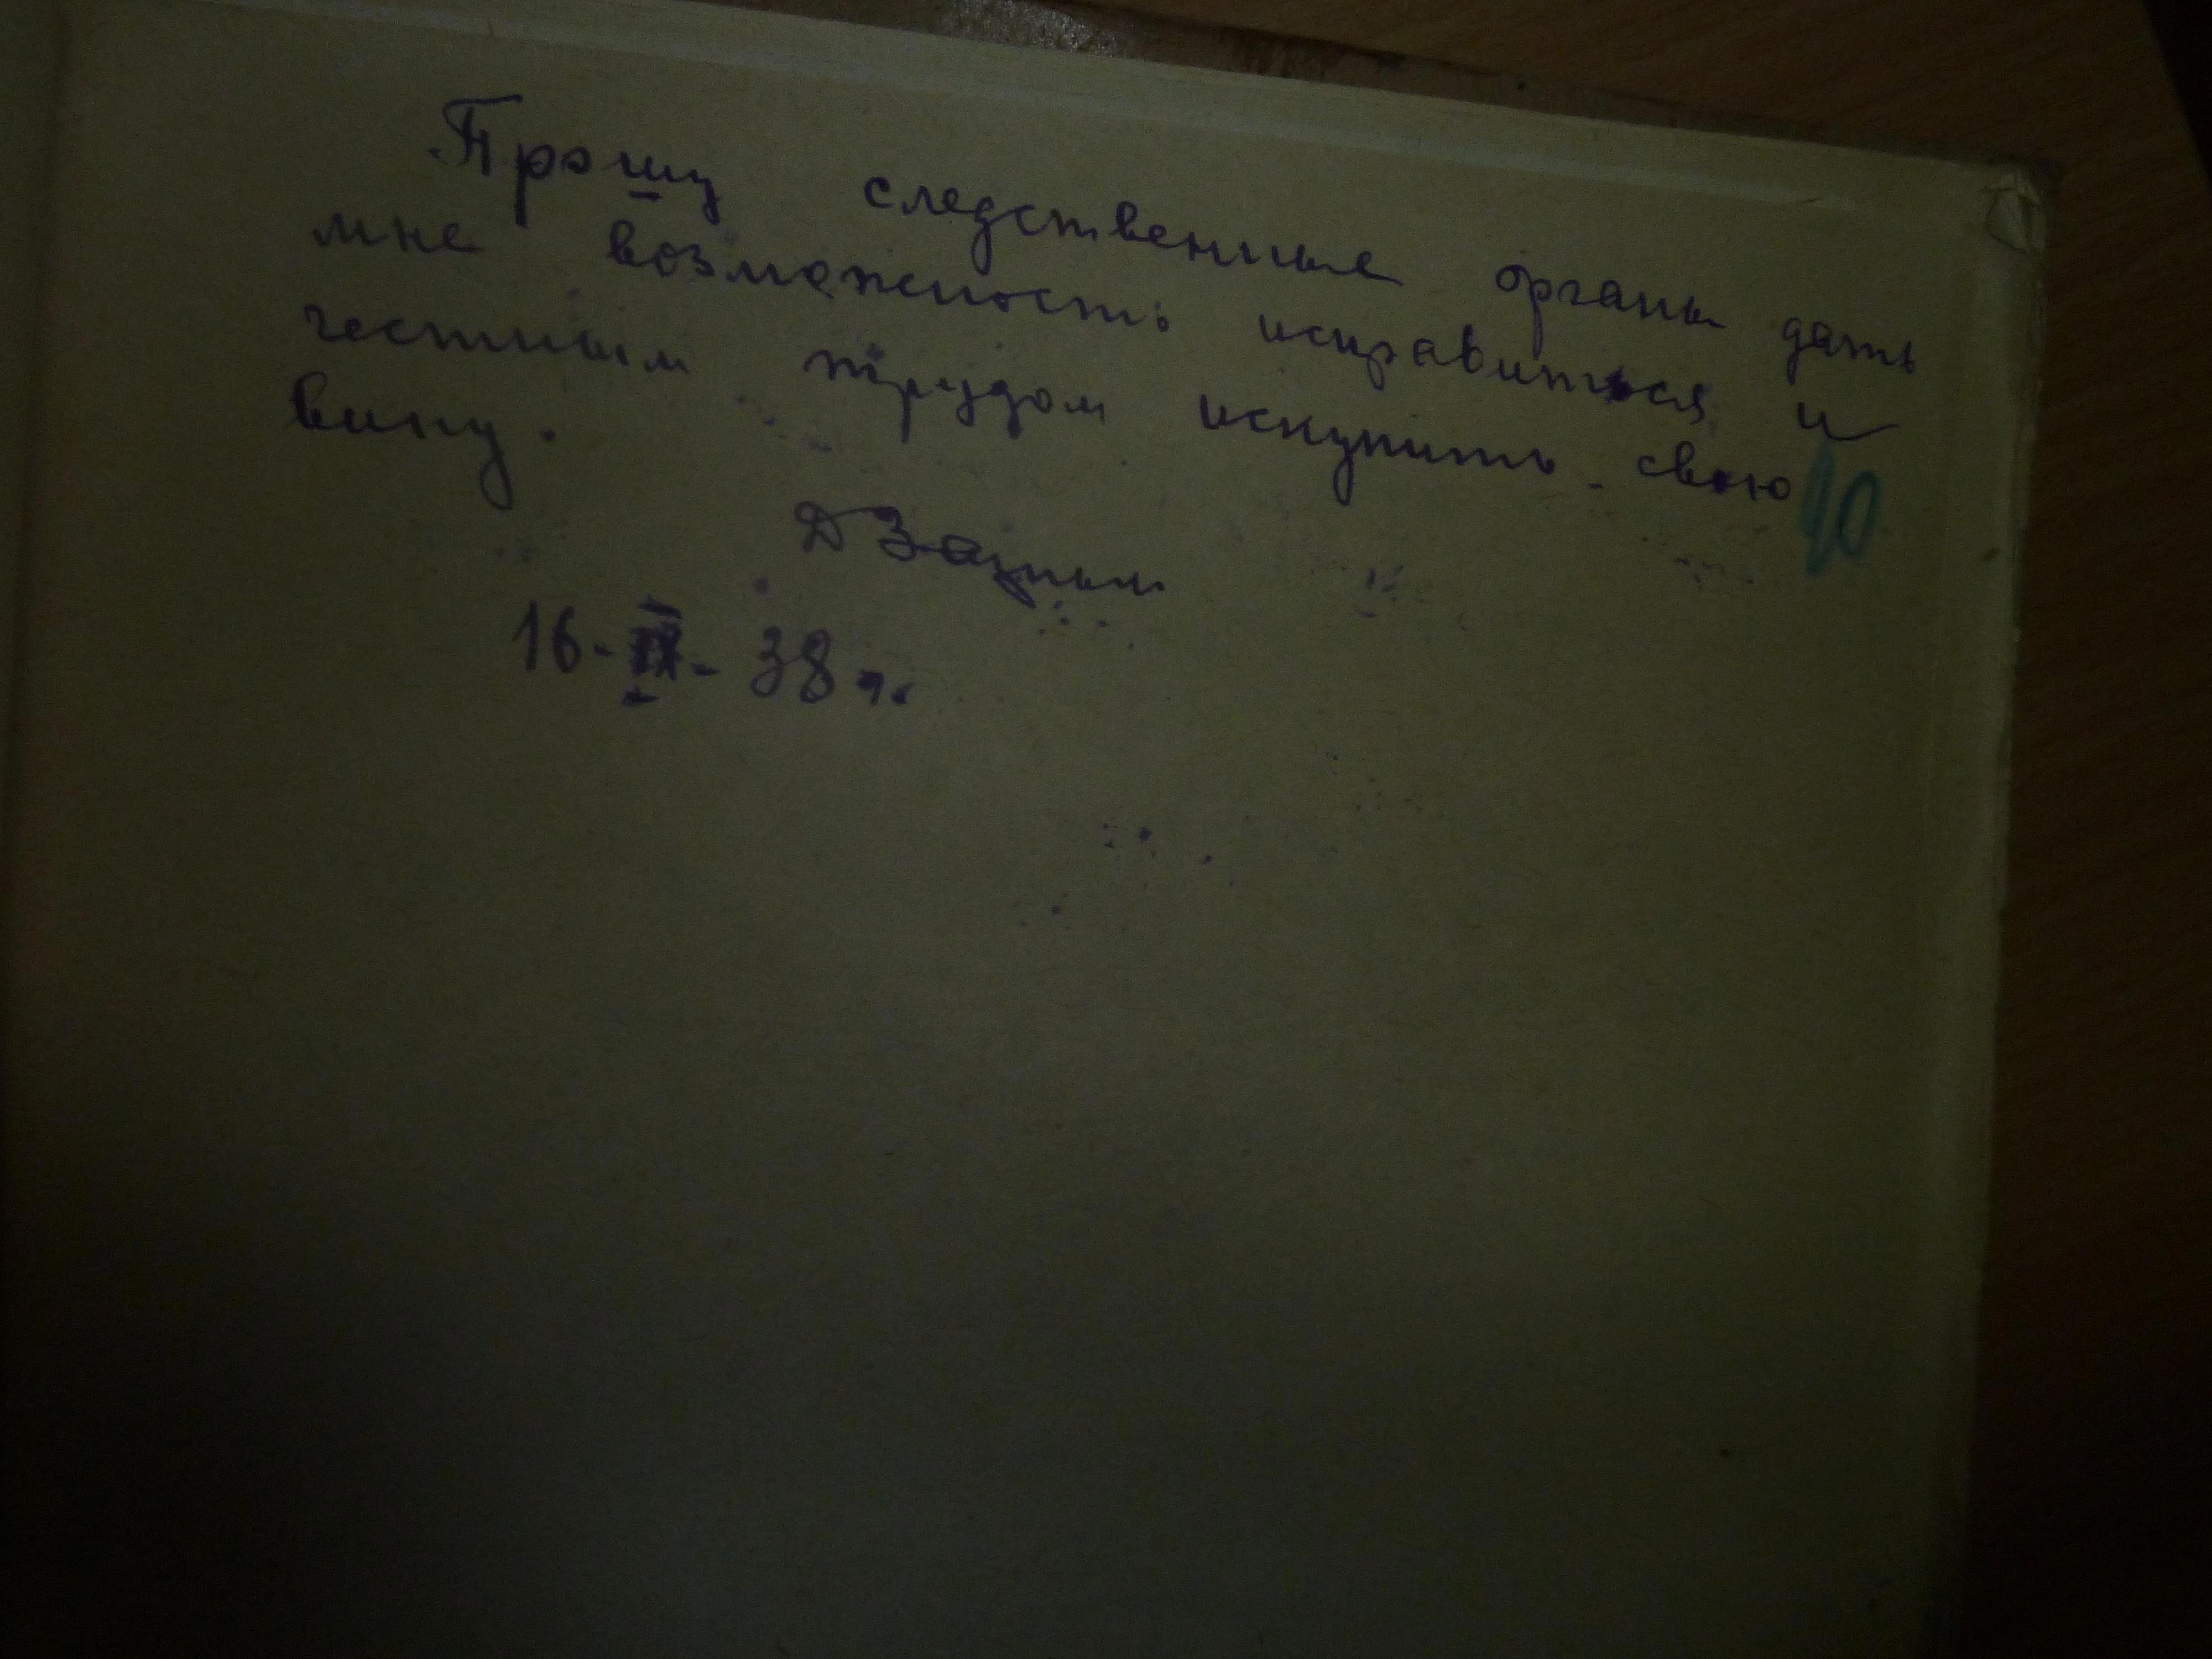 Прошу следственные органы дать
мне возможность исправиться и
честным трудом искупить свою
вину.
10
16- - 38 г.